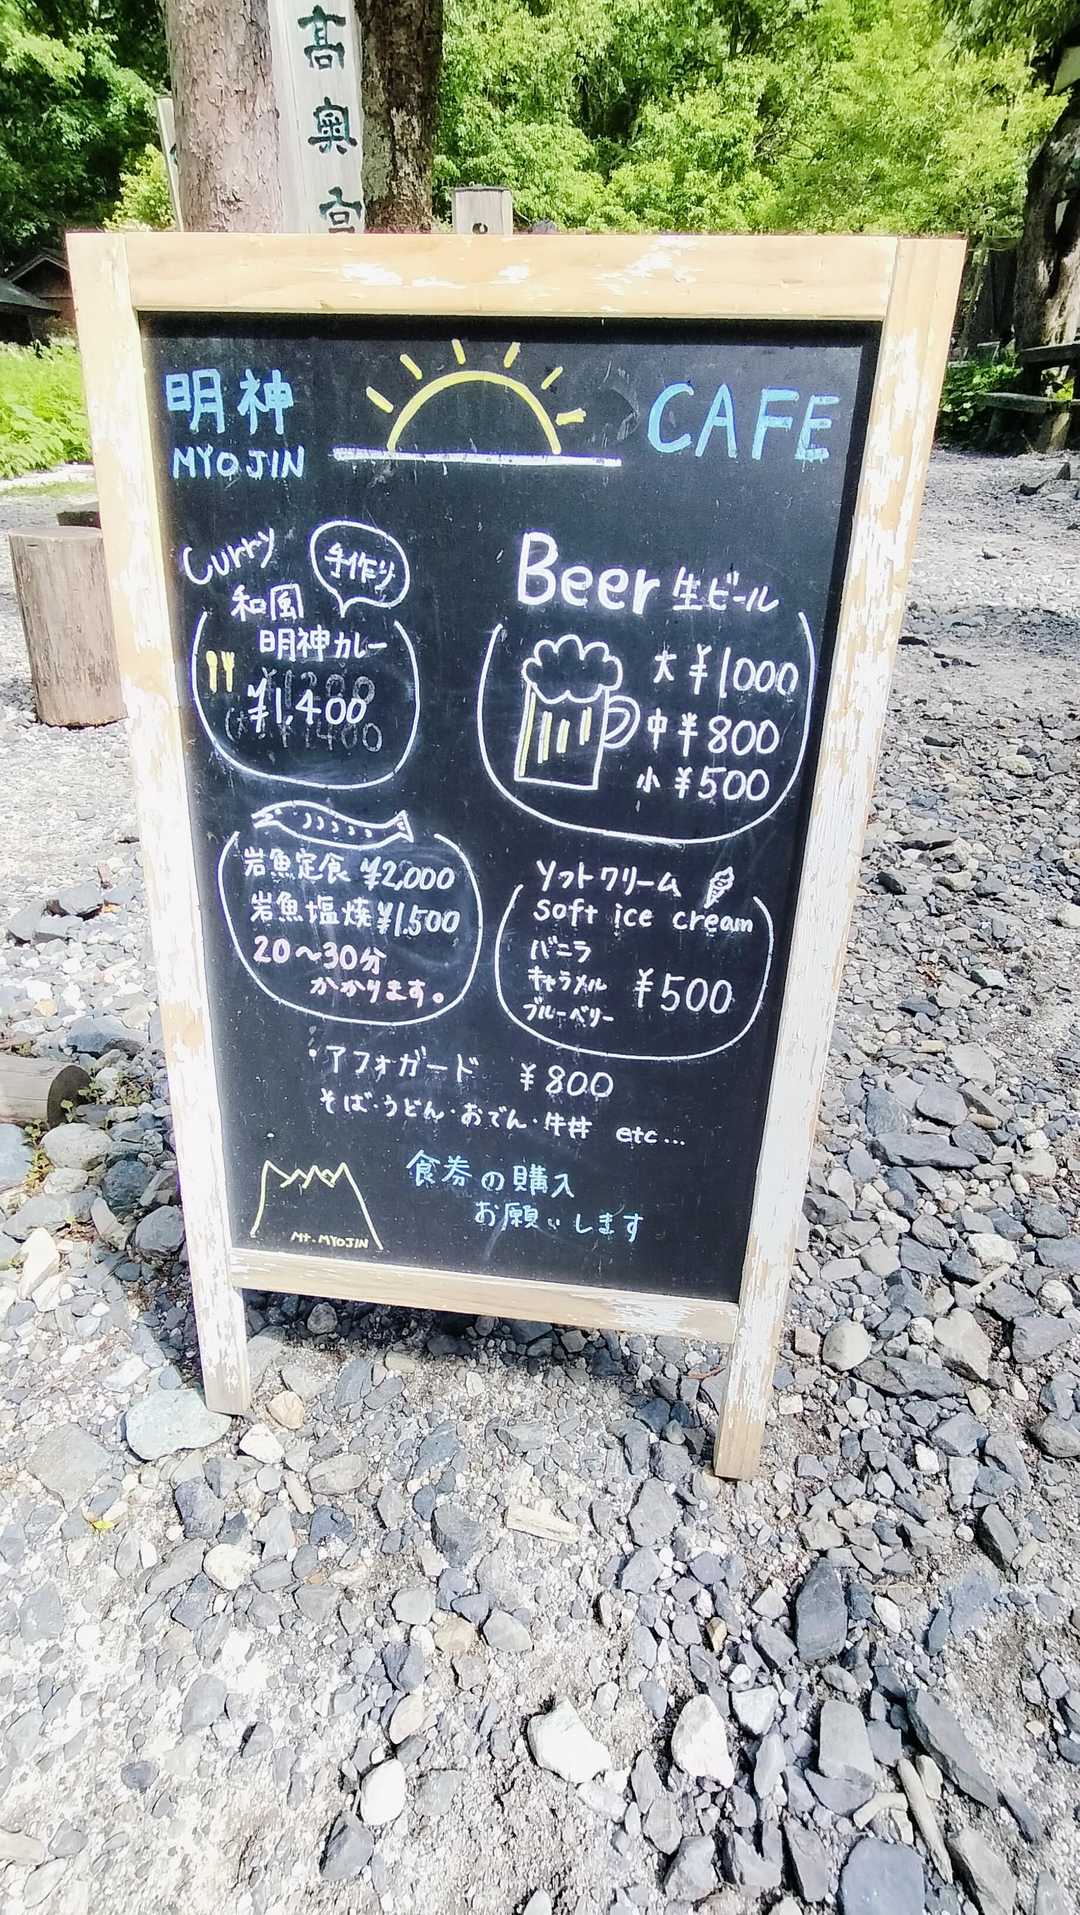 髙奥宮
明神
MYOJIN
CAFE
Curry
手作り
和風
明神カレー
¥1,400
Beer 生ビール
大 ¥1000
中 ¥800
小 ¥500
岩魚定食 ¥2,000
岩魚塩焼 ¥1,500
20〜30分
かかります。
ソフトクリーム
soft ice cream
バニラ
キャラメル
ブルーベリー
¥500
・アフォガード ¥800
そば・うどん・おでん・牛丼 etc...
食券の購入
お願いします
Mt. MYOJIN